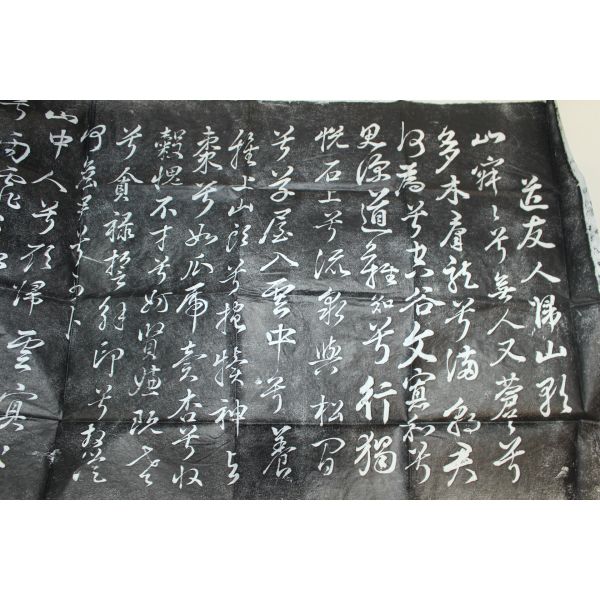 送友人歸山歌
山寂〻兮無人又蒼〻兮
多木群龍兮滿朝君
何為兮空谷文寡和兮
思深道難知兮行獨
悅石上兮流泉與松間
兮草屋入雲中兮養
雞上山頭兮抱犢神與
棗兮如瓜虎賣杏兮收
穀愧不才兮妨賢嫌既老
兮貪祿誓解印兮相從
何詹尹兮可卜
山中人兮欲歸雲冥〻
兮雨霏